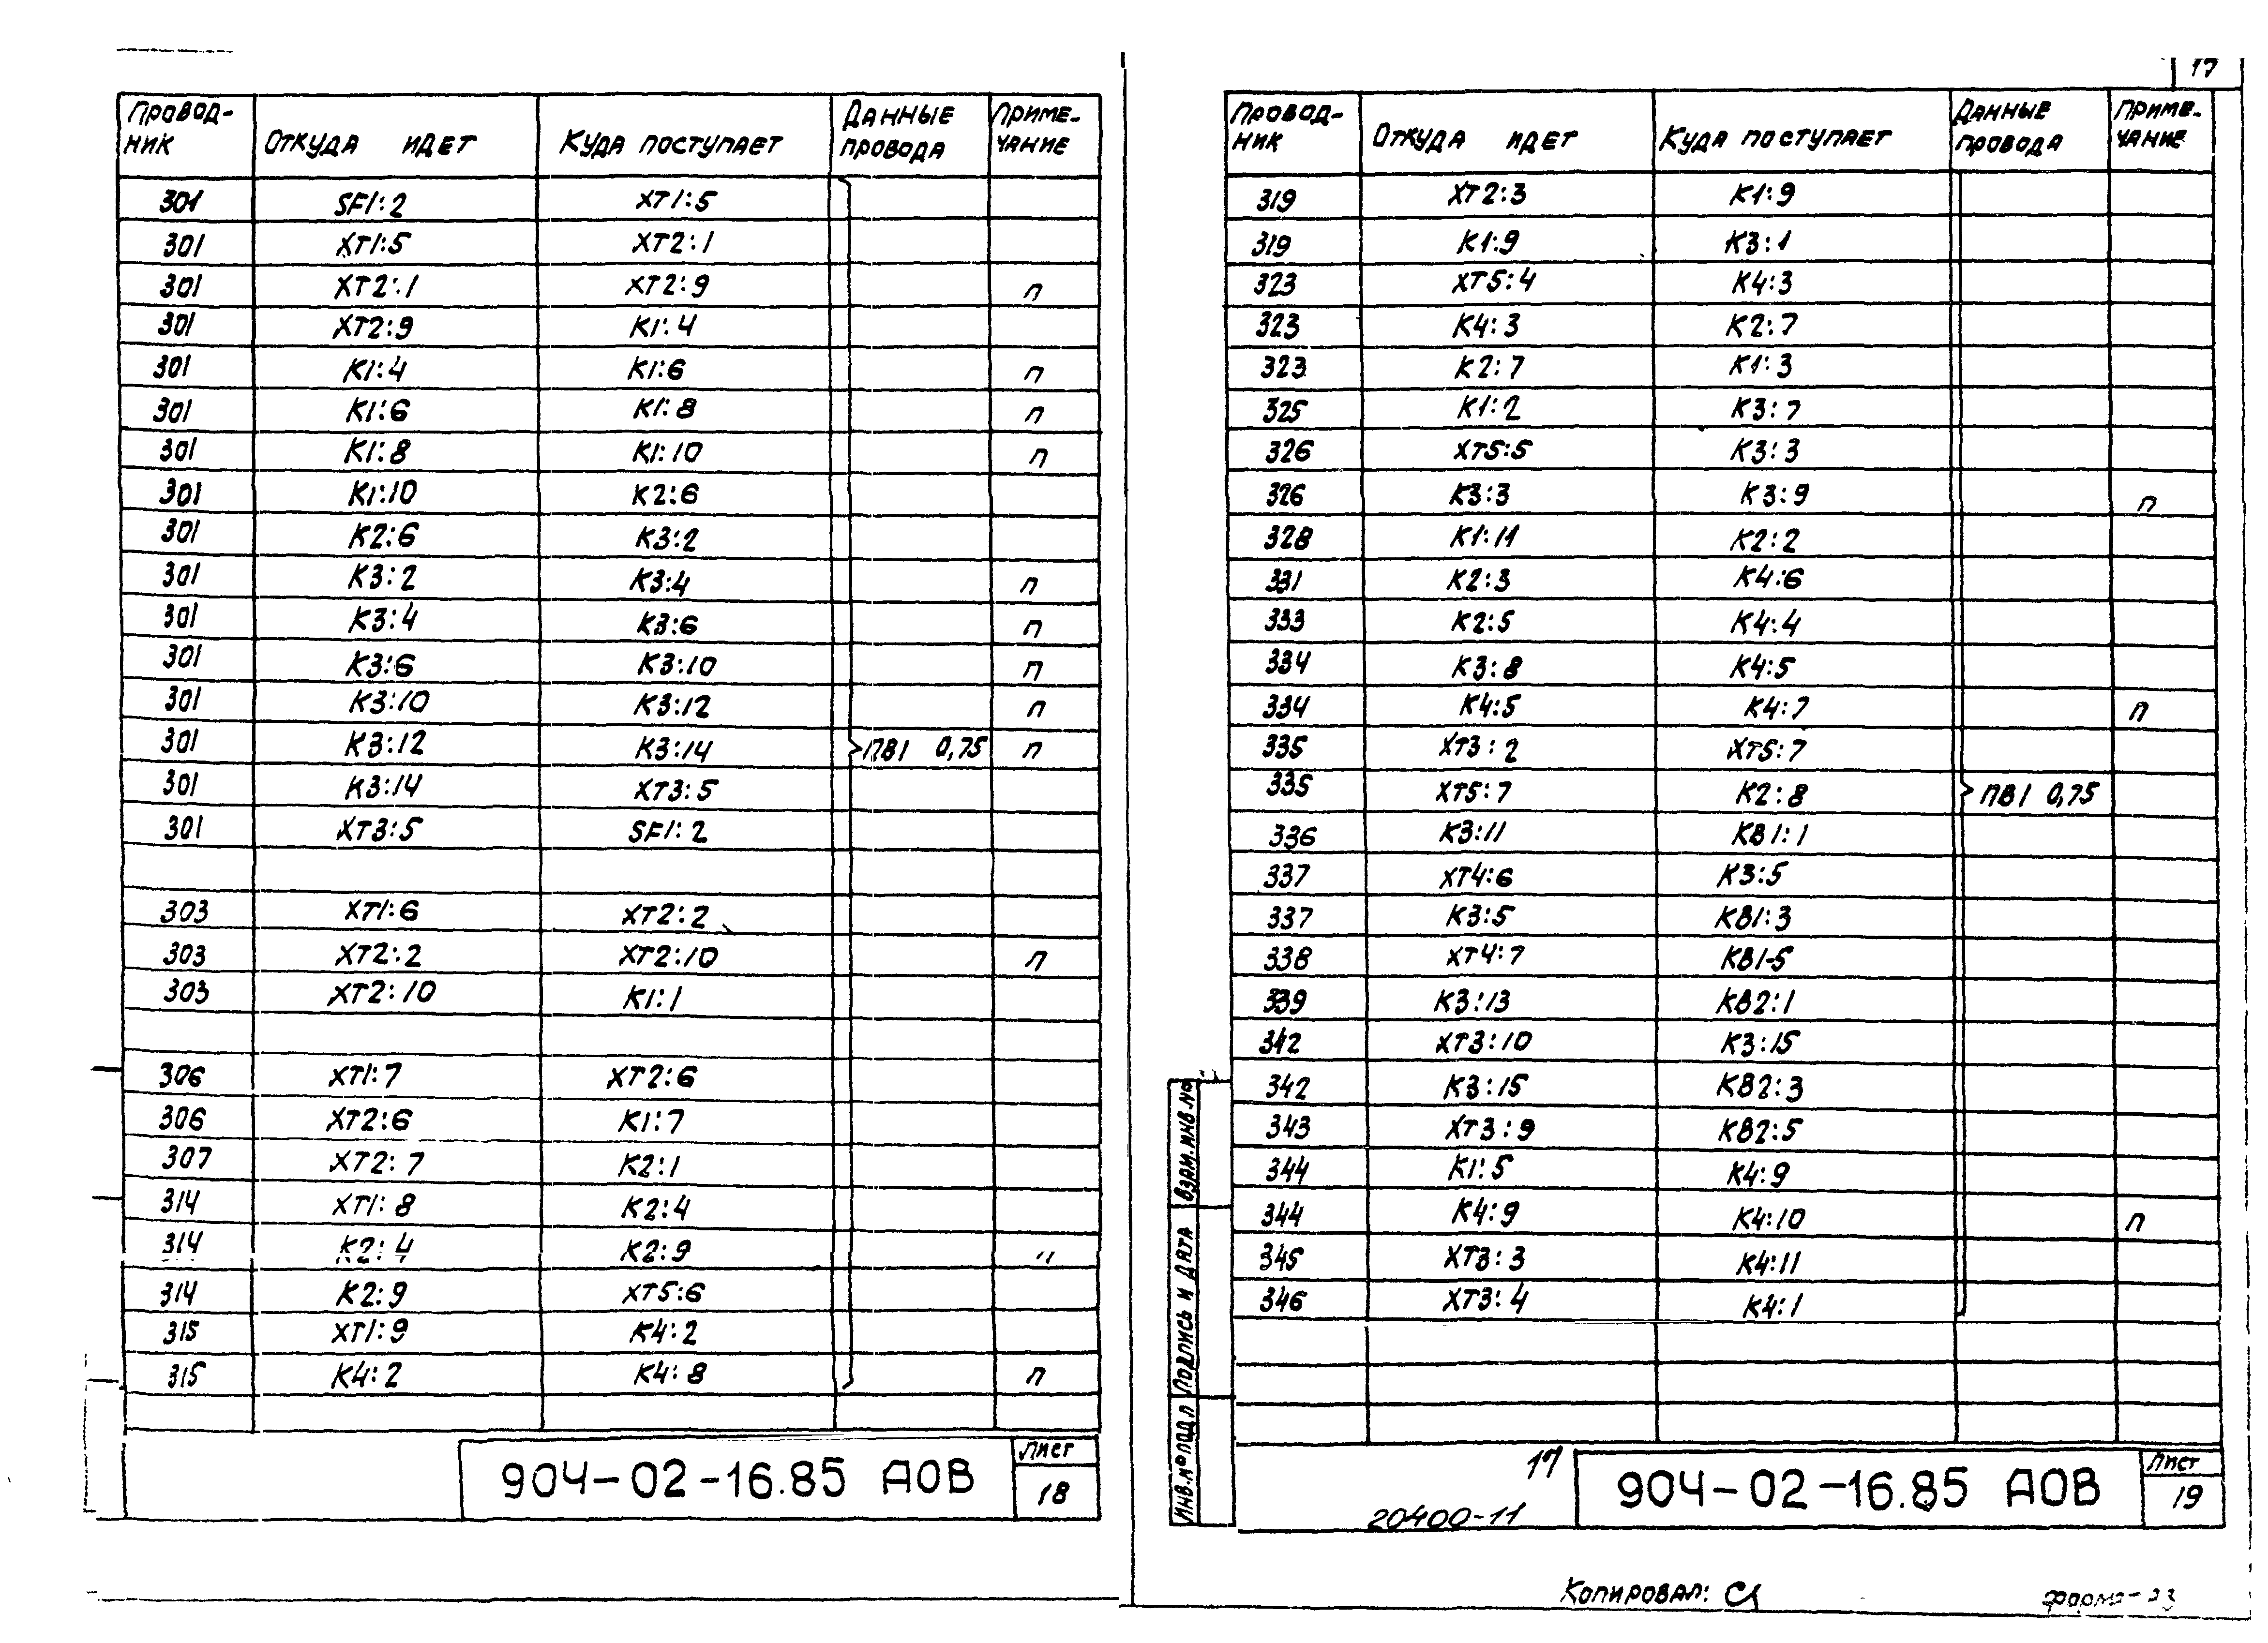 Провод-
ник Откуда идет Куда поступает Данные
провода Приме-
чание
301 SF1:2 XT1:5
301 XT1:5 XT2:1
301 XT2:1 XT2:9 п
301 XT2:9 K1:4
301 K1:4 K1:6 п
301 K1:6 K1:8 п
301 K1:8 K1:10 п
301 K1:10 K2:6
301 K2:6 K3:2
301 K3:2 K3:4 п
301 K3:4 K3:6 п
301 K3:6 K3:10 п
301 K3:10 K3:12 п
301 K3:12 K3:14 ПВ1 0,75 п
301 K3:14 XT3:5
301 XT3:5 SF1:2
303 XT1:6 XT2:2
303 XT2:2 XT2:10 п
303 XT2:10 K1:1
306 XT1:7 XT2:6
306 XT2:6 K1:7
307 XT2:7 K2:1
314 XT1:8 K2:4
314 K2:4 K2:9
314 K2:9 XT5:6
315 XT1:9 K4:2
315 K4:2 K4:8 п
904-02-16.85 АОВ
Лист
18
17
Провод-
ник Откуда идет Куда поступает Данные
провода Приме-
чание
319 XT2:3 K1:9
319 K1:9 K3:1
323 XT5:4 K4:3
323 K4:3 K2:7
323 K2:7 K1:3
325 K1:2 K3:7
326 XT5:5 K3:3
326 K3:3 K3:9 п
328 K1:11 K2:2
331 K2:3 K4:6
333 K2:5 K4:4
334 K3:8 K4:5
334 K4:5 K4:7 п
335 XT3:2 XT5:7
335 XT5:7 K2:8 ПВ1 0,75
336 K3:11 KB1:1
337 XT4:6 K3:5
337 K3:5 KB1:3
338 XT4:7 KB1-5
339 K3:13 KB2:1
342 XT3:10 K3:15
342 K3:15 KB2:3
343 XT3:9 KB2:5
344 K1:5 K4:9
344 K4:9 K4:10 п
345 XT3:3 K4:11
346 XT3:4 K4:1
Взам.инв.№
Подпись и дата
Инв.№подл
17
20400-11
904-02-16.85 АОВ
Лист
19
Копировал: